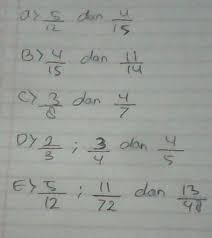 A> 5/12 dan 4/15
B> 4/15 dan 11/14
C> 3/8 dan 4/7
D> 2/3 ; 3/4 dan 4/5
E> 5/12 ; 11/72 dan 13/48